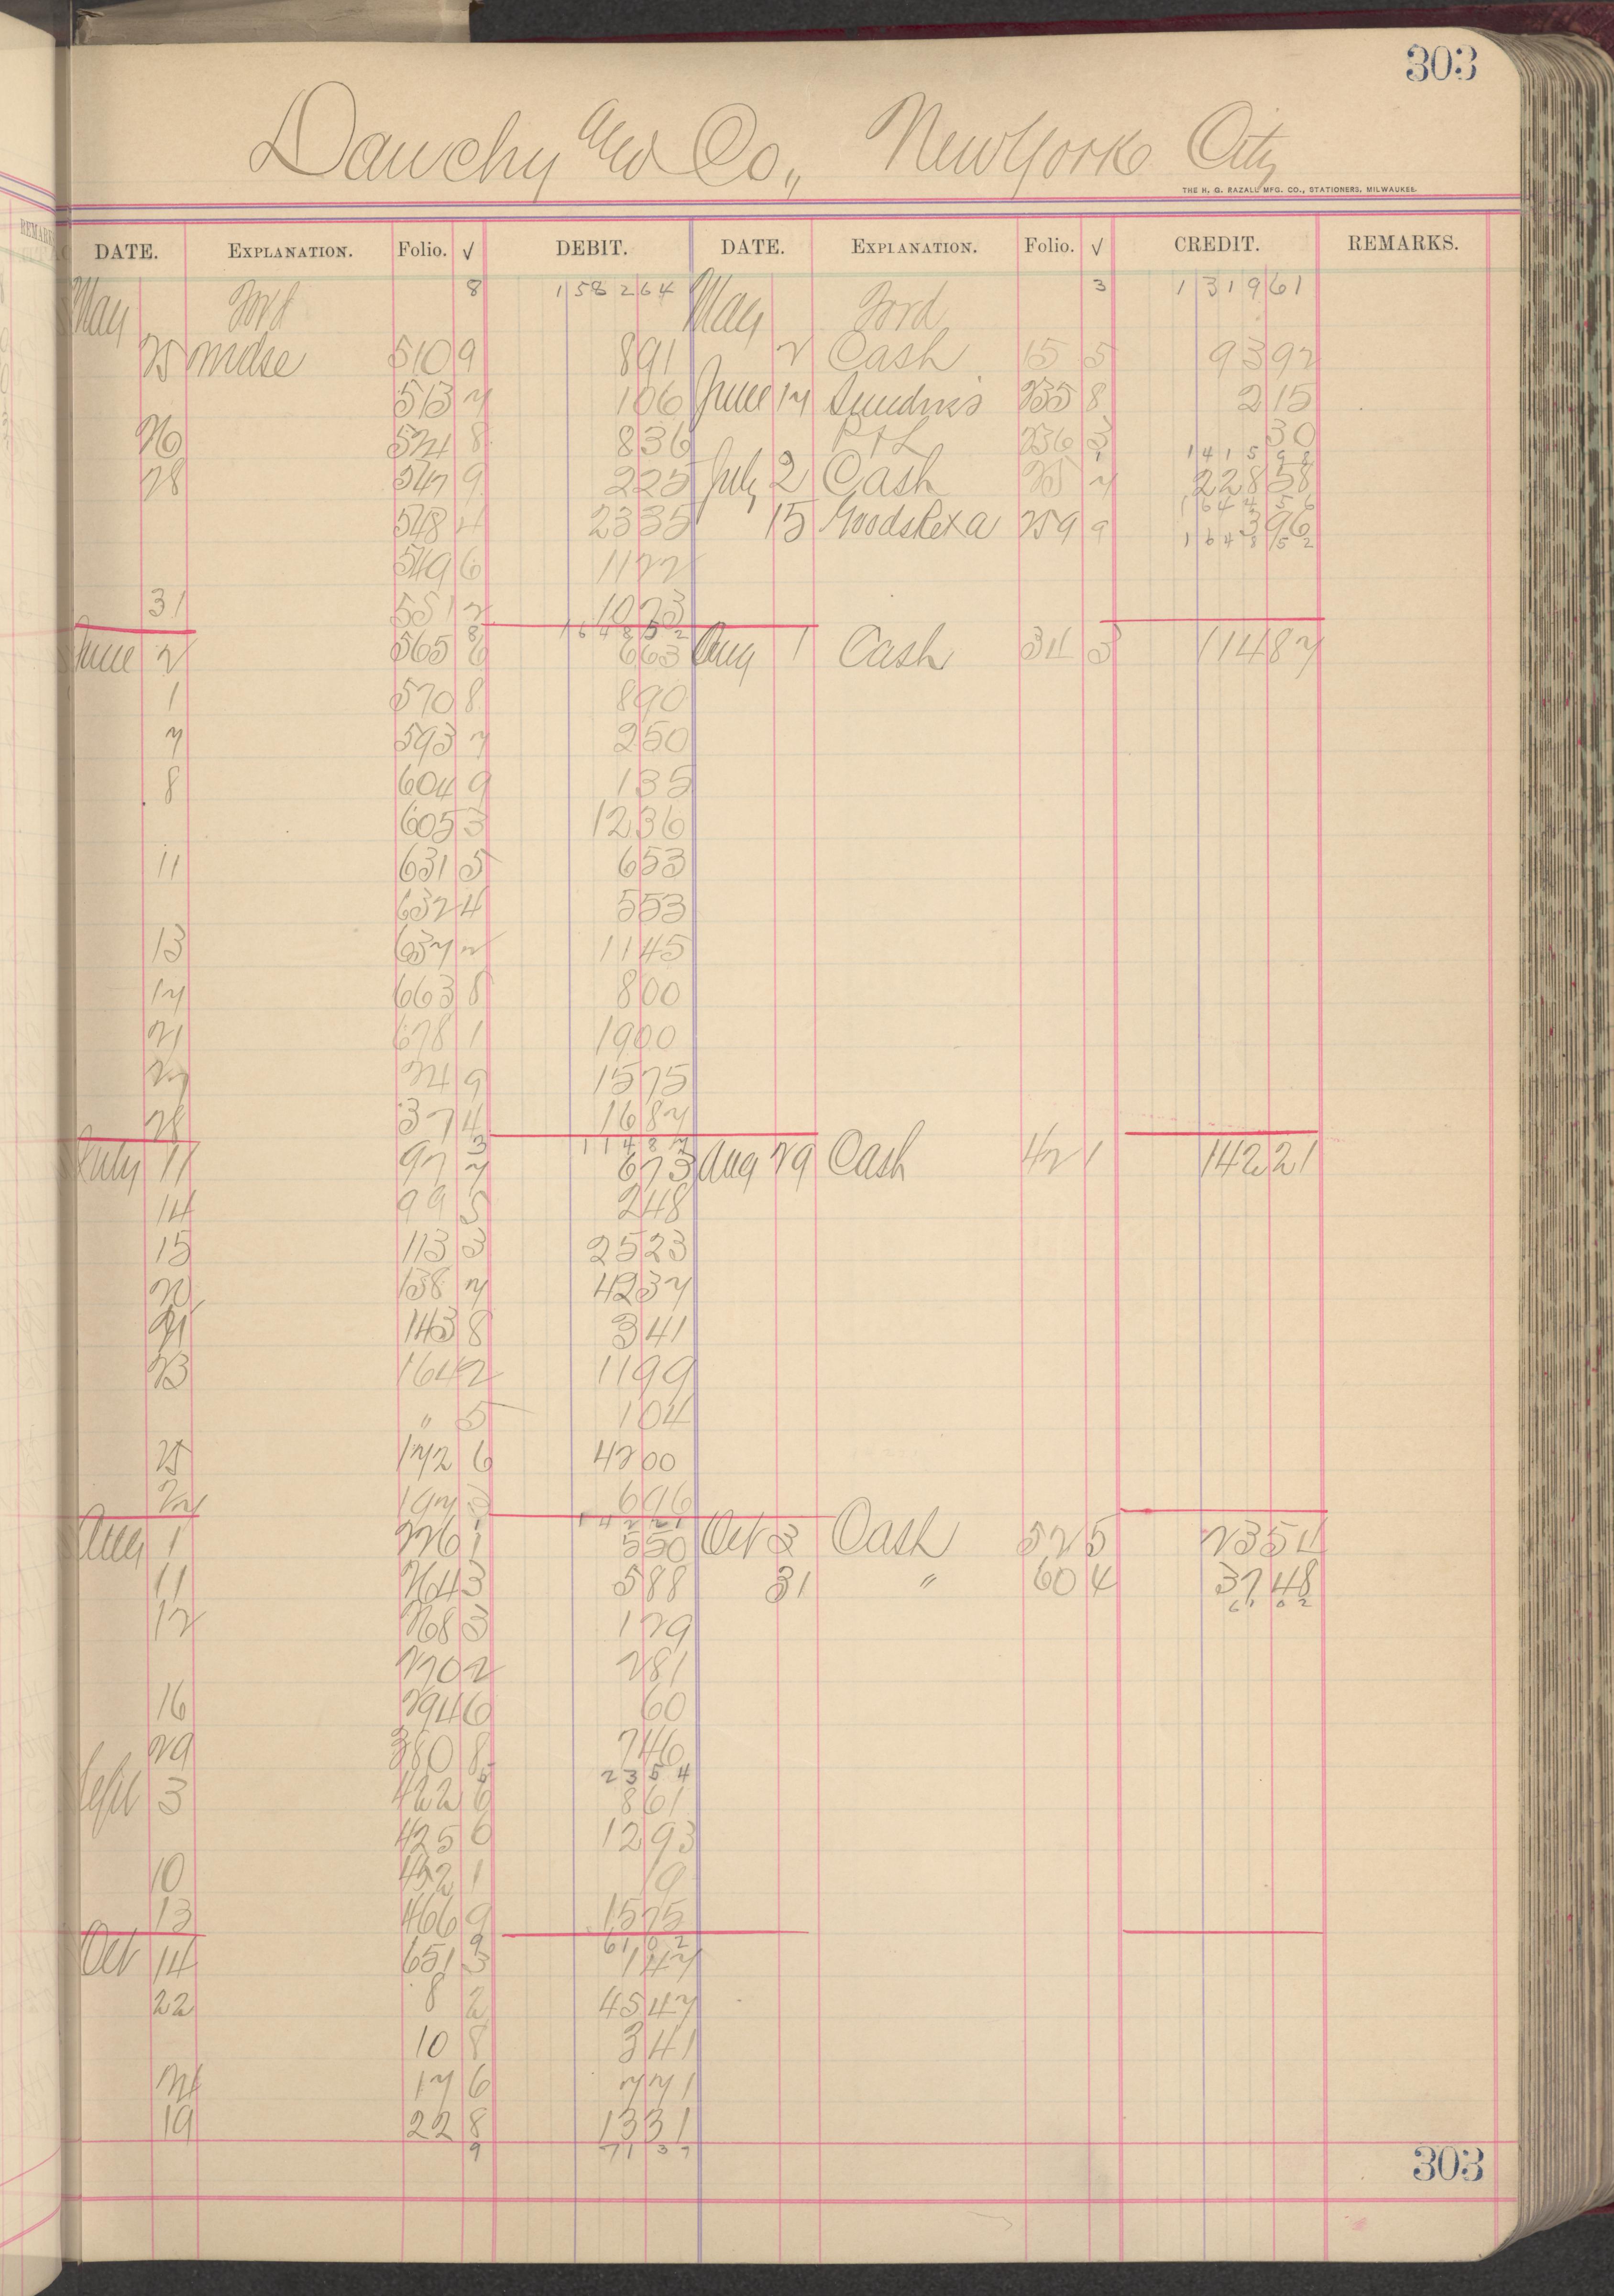 303
Dauchy and Co., New York City
THE H. G. RAZALL MFG. CO., STATIONERS, MILWAUKEE.
DATE. EXPLANATION. Folio. √ DEBIT. DATE. EXPLANATION. Folio. √ CREDIT. REMARKS.
May Ford 8 1 58 2 64 May Ford 3 1 3 1 9 61
25 mdse 510 9 8 91 2 Cash 15 5 93 92
513 7 1 06 June 17 Sundries 235 8 2 15
26 524 8 8 36 P & L 236 3 30
1 4 1 5 9 8
28 547 9 2 25 July 2 Cash 25 7 228 58
1 6 4 4 5 6
548 4 23 35 15 Goods Rexa 259 9 3 96
1 6 4 8 5 2
549 6 11 22
31 551 2 10 73
1 6 4 8 5 2
June 2 565 6 6 63 Aug 1 Cash 311 3 114 87
1 570 8 8 90
7 593 7 2 50
8 604 9 1 35
605 3 12 36
11 631 5 6 53
632 4 5 53
13 637 2 11 45
17 663 8 8 00
21 678 1 19 00
27 24 9 15 75
28 37 4 16 87
1 1 4 8 7
July 11 97 7 6 73 Aug 29 Cash 42 1 142 21
14 99 5 2 48
15 113 3 25 23
20 138 7 42 37
21 143 8 3 41
23 164 2 11 99
" 5 1 04
25 172 6 42 00
27 197 3 6 96
1 4 2 2 1
Aug 1 226 1 5 50 Oct 3 Cash 52 5 23 54
11 264 3 5 88 31 " 60 4 37 48
6 1 0 2
12 268 3 1 29
270 2 2 81
16 294 6 60
29 380 8 7 46
2 3 5 4
Sept 3 422 6 8 61
425 6 12 93
10 452 1 19
13 466 9 15 75
6 1 0 2
Oct 14 651 3 1 47
22 8 2 45 47
10 8 3 41
24 17 6 7 71
19 22 8 13 31
9 7 1 3 7
303